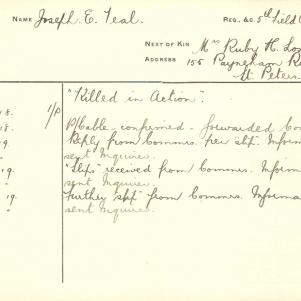 NAME Joseph E. Teal. REG. &C. 5th Field
NEXT OF KIN Mrs Ruby H.
ADDRESS 155 Payneham
St. Peters
"Killed in Action".
18. 1/P
18. P/Cable - confirmed - forwarded
19. Reply from Commrs. per slip. Inform
sent Inquirer.
19. "Slip" received from Commrs. Informa
sent Inquirer.
19. Further "slip" from Commrs. Informa
sent Inquirer.